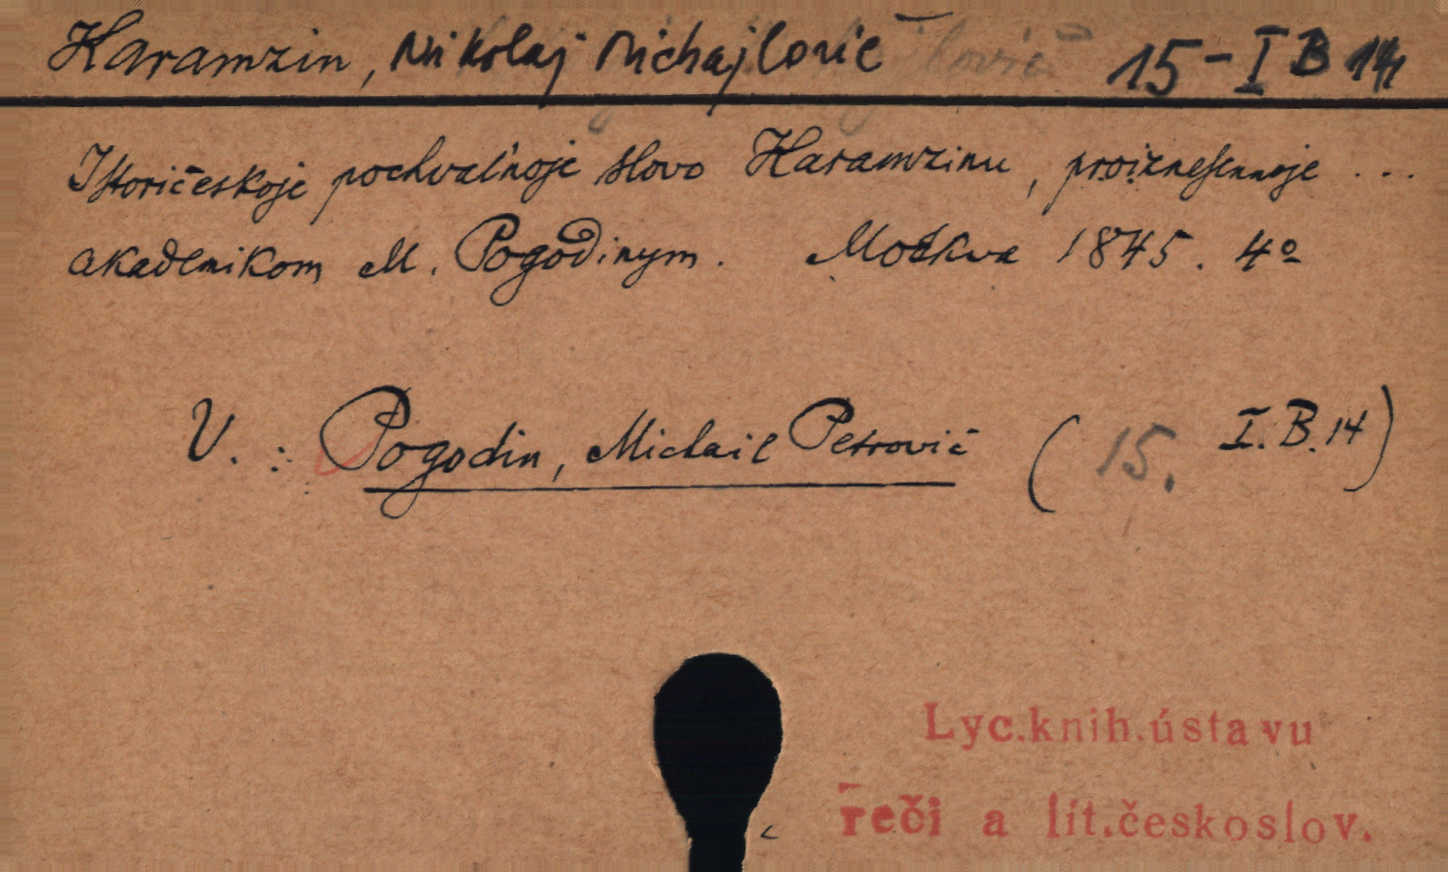 Karamzin, Nikolaj Michajlovič 15-I B 14
Istoričeskoje pochvaľnoje slovo Karamzinu, proiznesennoje ...
akademikom M. Pogodinym. Moskva 1845. 4º
V. : Pogodin, Michail Petrovič (15. I.B.14)
Lyc.knih.ústavu
řeči a lit.českoslov.